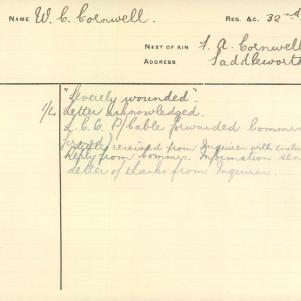 NAME W. C. Cornwell. REG. &C. 32nd
NEXT OF KIN F. A. Cornwell
ADDRESS Saddleworth
"Severely wounded".
1/4 Letter acknowledged.
L.C.C. P/Cable forwarded Commis
received from Inquirer with
Reply from Commis. Information sen
Letter of thanks from Inquirer.